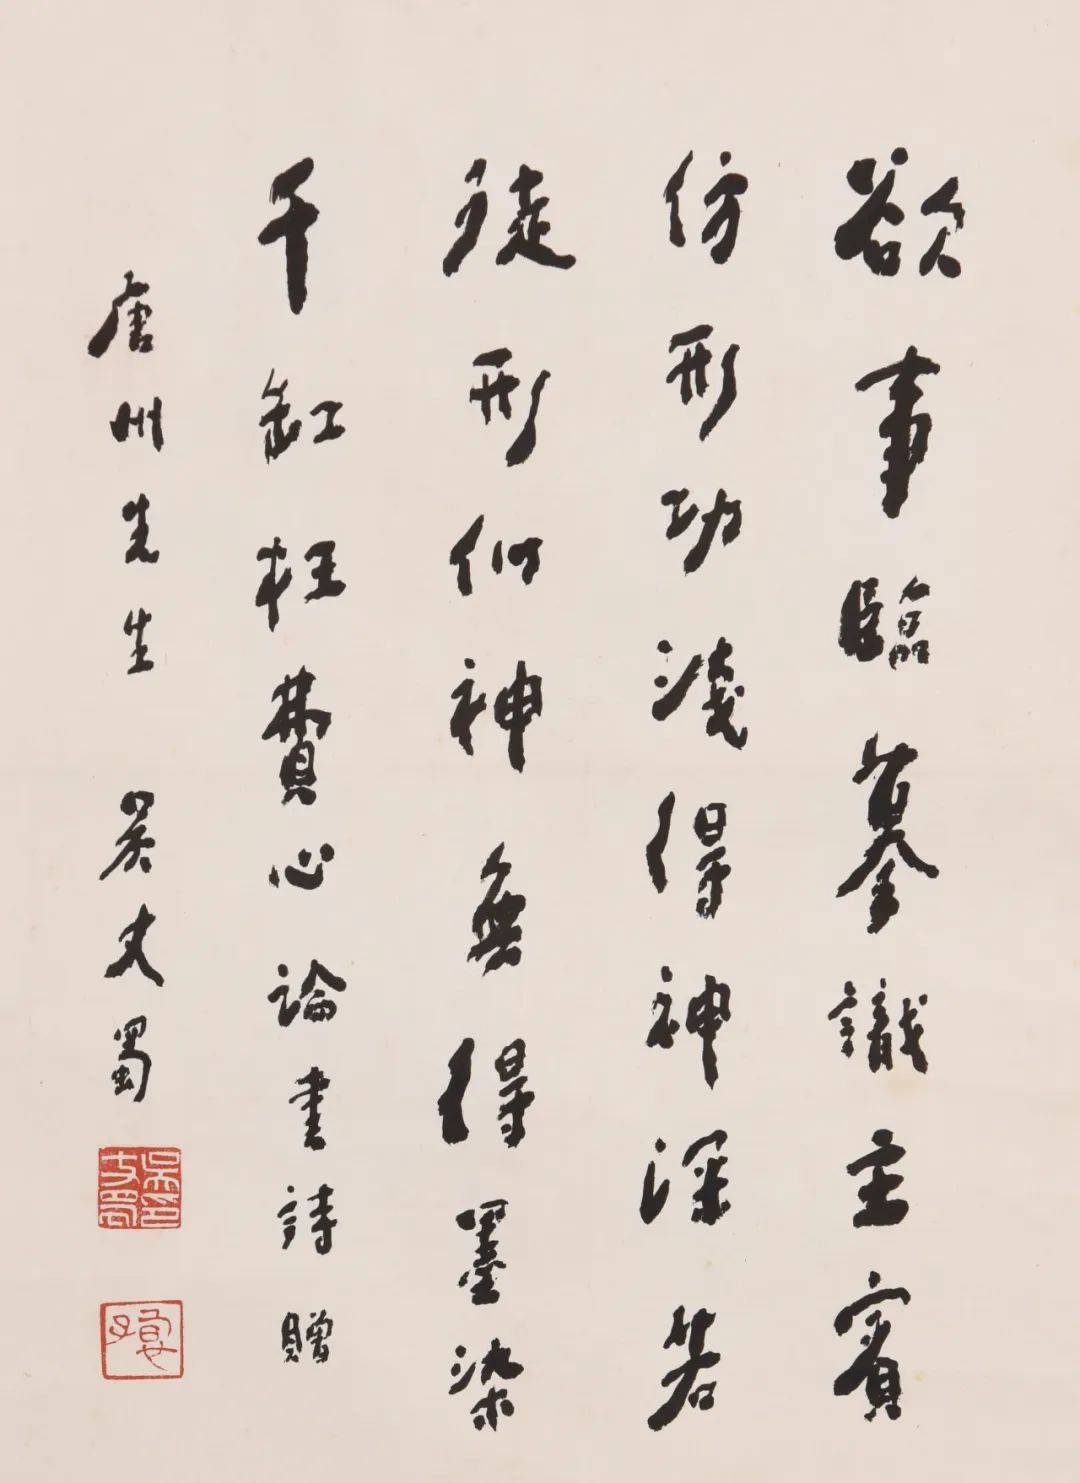 欲事臨摹識主賓
仿形功淺得神深若
徒形似神無得墨染
千缸枉費心論書詩贈
唐州先生 吴丈蜀
吴丈蜀